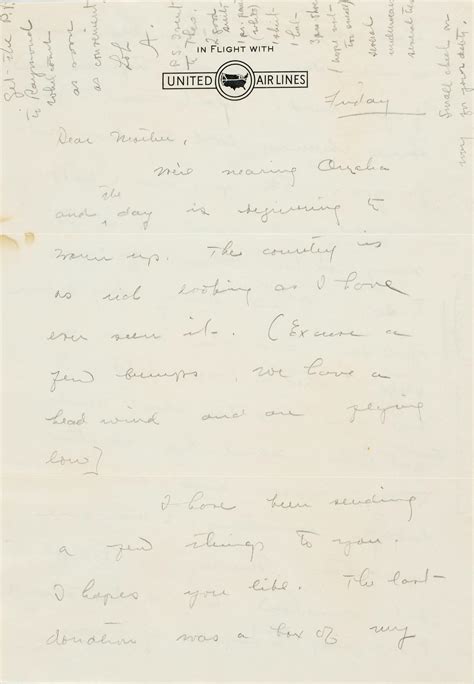 IN FLIGHT WITH
UNITED AIR LINES
Friday
Dear Mother,
We're nearing Omaha
and the day is beginning to
warm up. The country is
as rich looking as I have
ever seen it. (Excuse a
few bumps. We have a
head wind and are flying
low)
I have been sending
a few things to you.
I hopes you like. The last
donation was a box of my
Get the
to Raymond
as soon
as convenient
Love
A.
P.S. I sent
to Thee.
good
suits
(white)
1 hat
several
underwear
Small check on
way for your